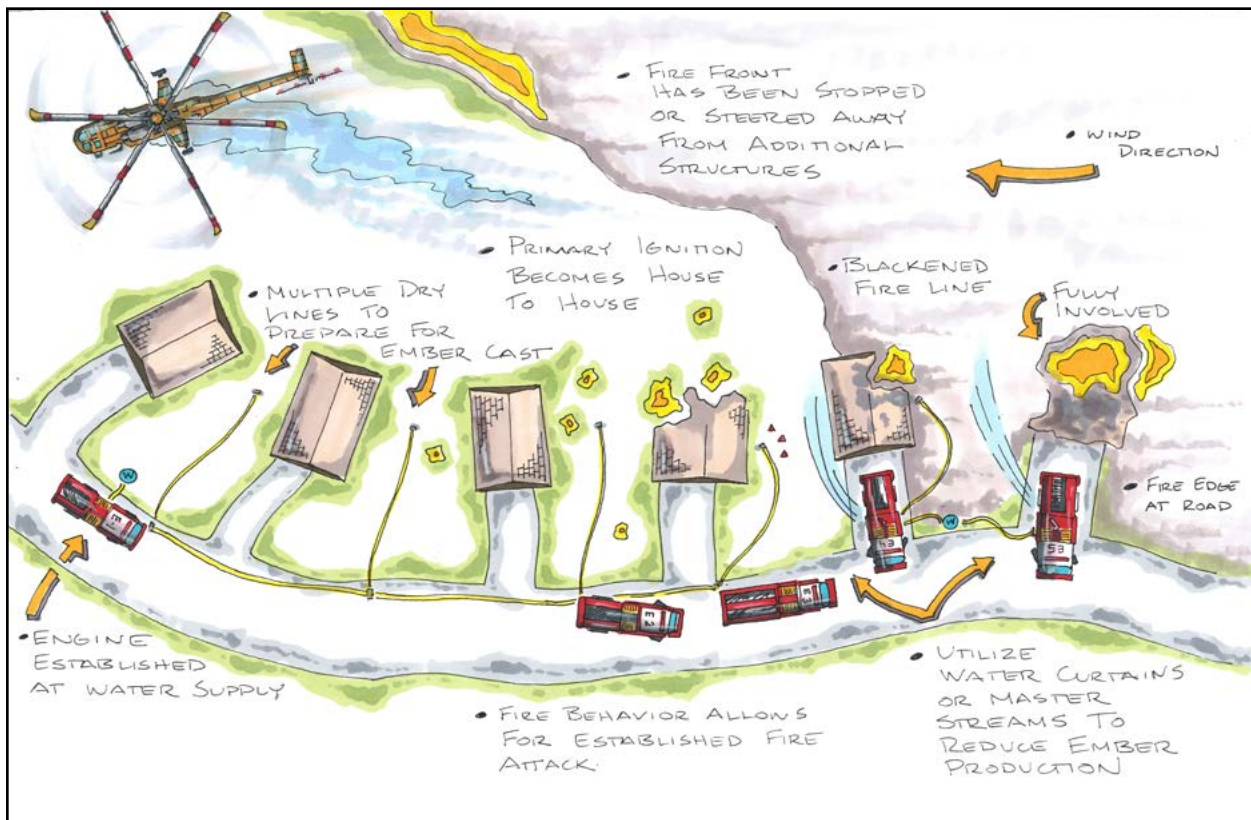 • FIRE FRONT
HAS BEEN STOPPED
OR STEERED AWAY
FROM ADDITIONAL
STRUCTURES
• WIND
DIRECTION
• PRIMARY IGNITION
BECOMES HOUSE
TO HOUSE
• BLACKENED
FIRE LINE
• FULLY
INVOLVED
• MULTIPLE DRY
LINES TO
PREPARE FOR
EMBER CAST
W
E1
• FIRE EDGE
AT ROAD
W
E2
E3
• ENGINE
ESTABLISHED
AT WATER SUPPLY
• FIRE BEHAVIOR ALLOWS
FOR ESTABLISHED FIRE
ATTACK.
• UTILIZE
WATER CURTAINS
OR MASTER
STREAMS TO
REDUCE EMBER
PRODUCTION